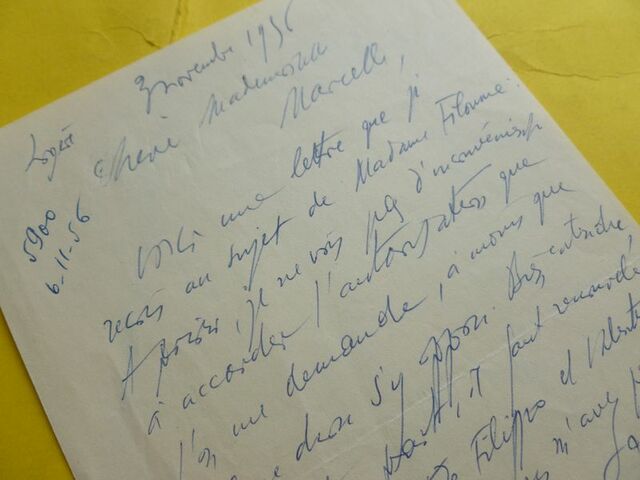 3 novembre 1956
5900
6-11-56
Chère Mademoiselle
Marcelle,
Voici une lettre que je
reçois au sujet de Madame Filoumé.
A priori, je ne vois pas d'inconvénients
à accorder l'autorisation que
l'on me demande, à moins que
s'y oppose. Bien entendu,
il faut
De Filippo et
m'avez